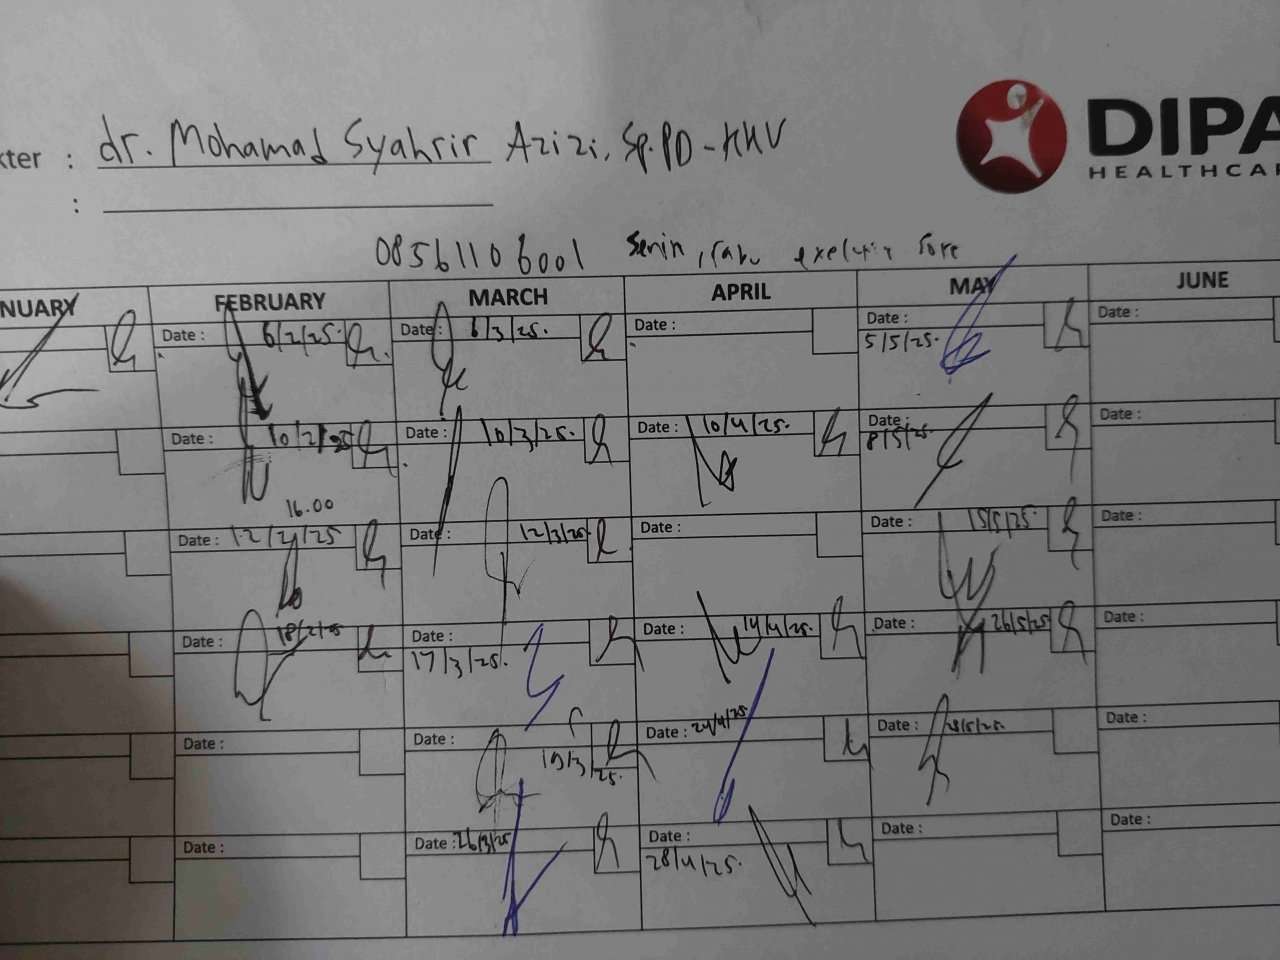 kter : dr. Mohamad Syahrir Azizi, Sp.PD-KHV
DIPA
HEALTHCAR
:
08561106001 Senin, rabu sore
NUARY FEBRUARY MARCH APRIL MAY JUNE
Date : 6/2/25. Date : 6/3/25. Date : Date : Date :
5/5/25.
Date : 10/2/25 Date : 10/3/25. Date : 10/4/25. Date : Date :
8/5/25.
16.00
Date : 12/2/25 Date : 12/3/25 Date : Date : 15/5/25. Date :
Date : 18/2/25 Date : Date : 14/4/25. Date : 26/5/25 Date :
17/3/25.
Date : Date : Date : 24/4/25. Date : 28/5/25. Date :
19/3/25.
Date : Date : 26/3/25 Date : Date : Date :
28/4/25.